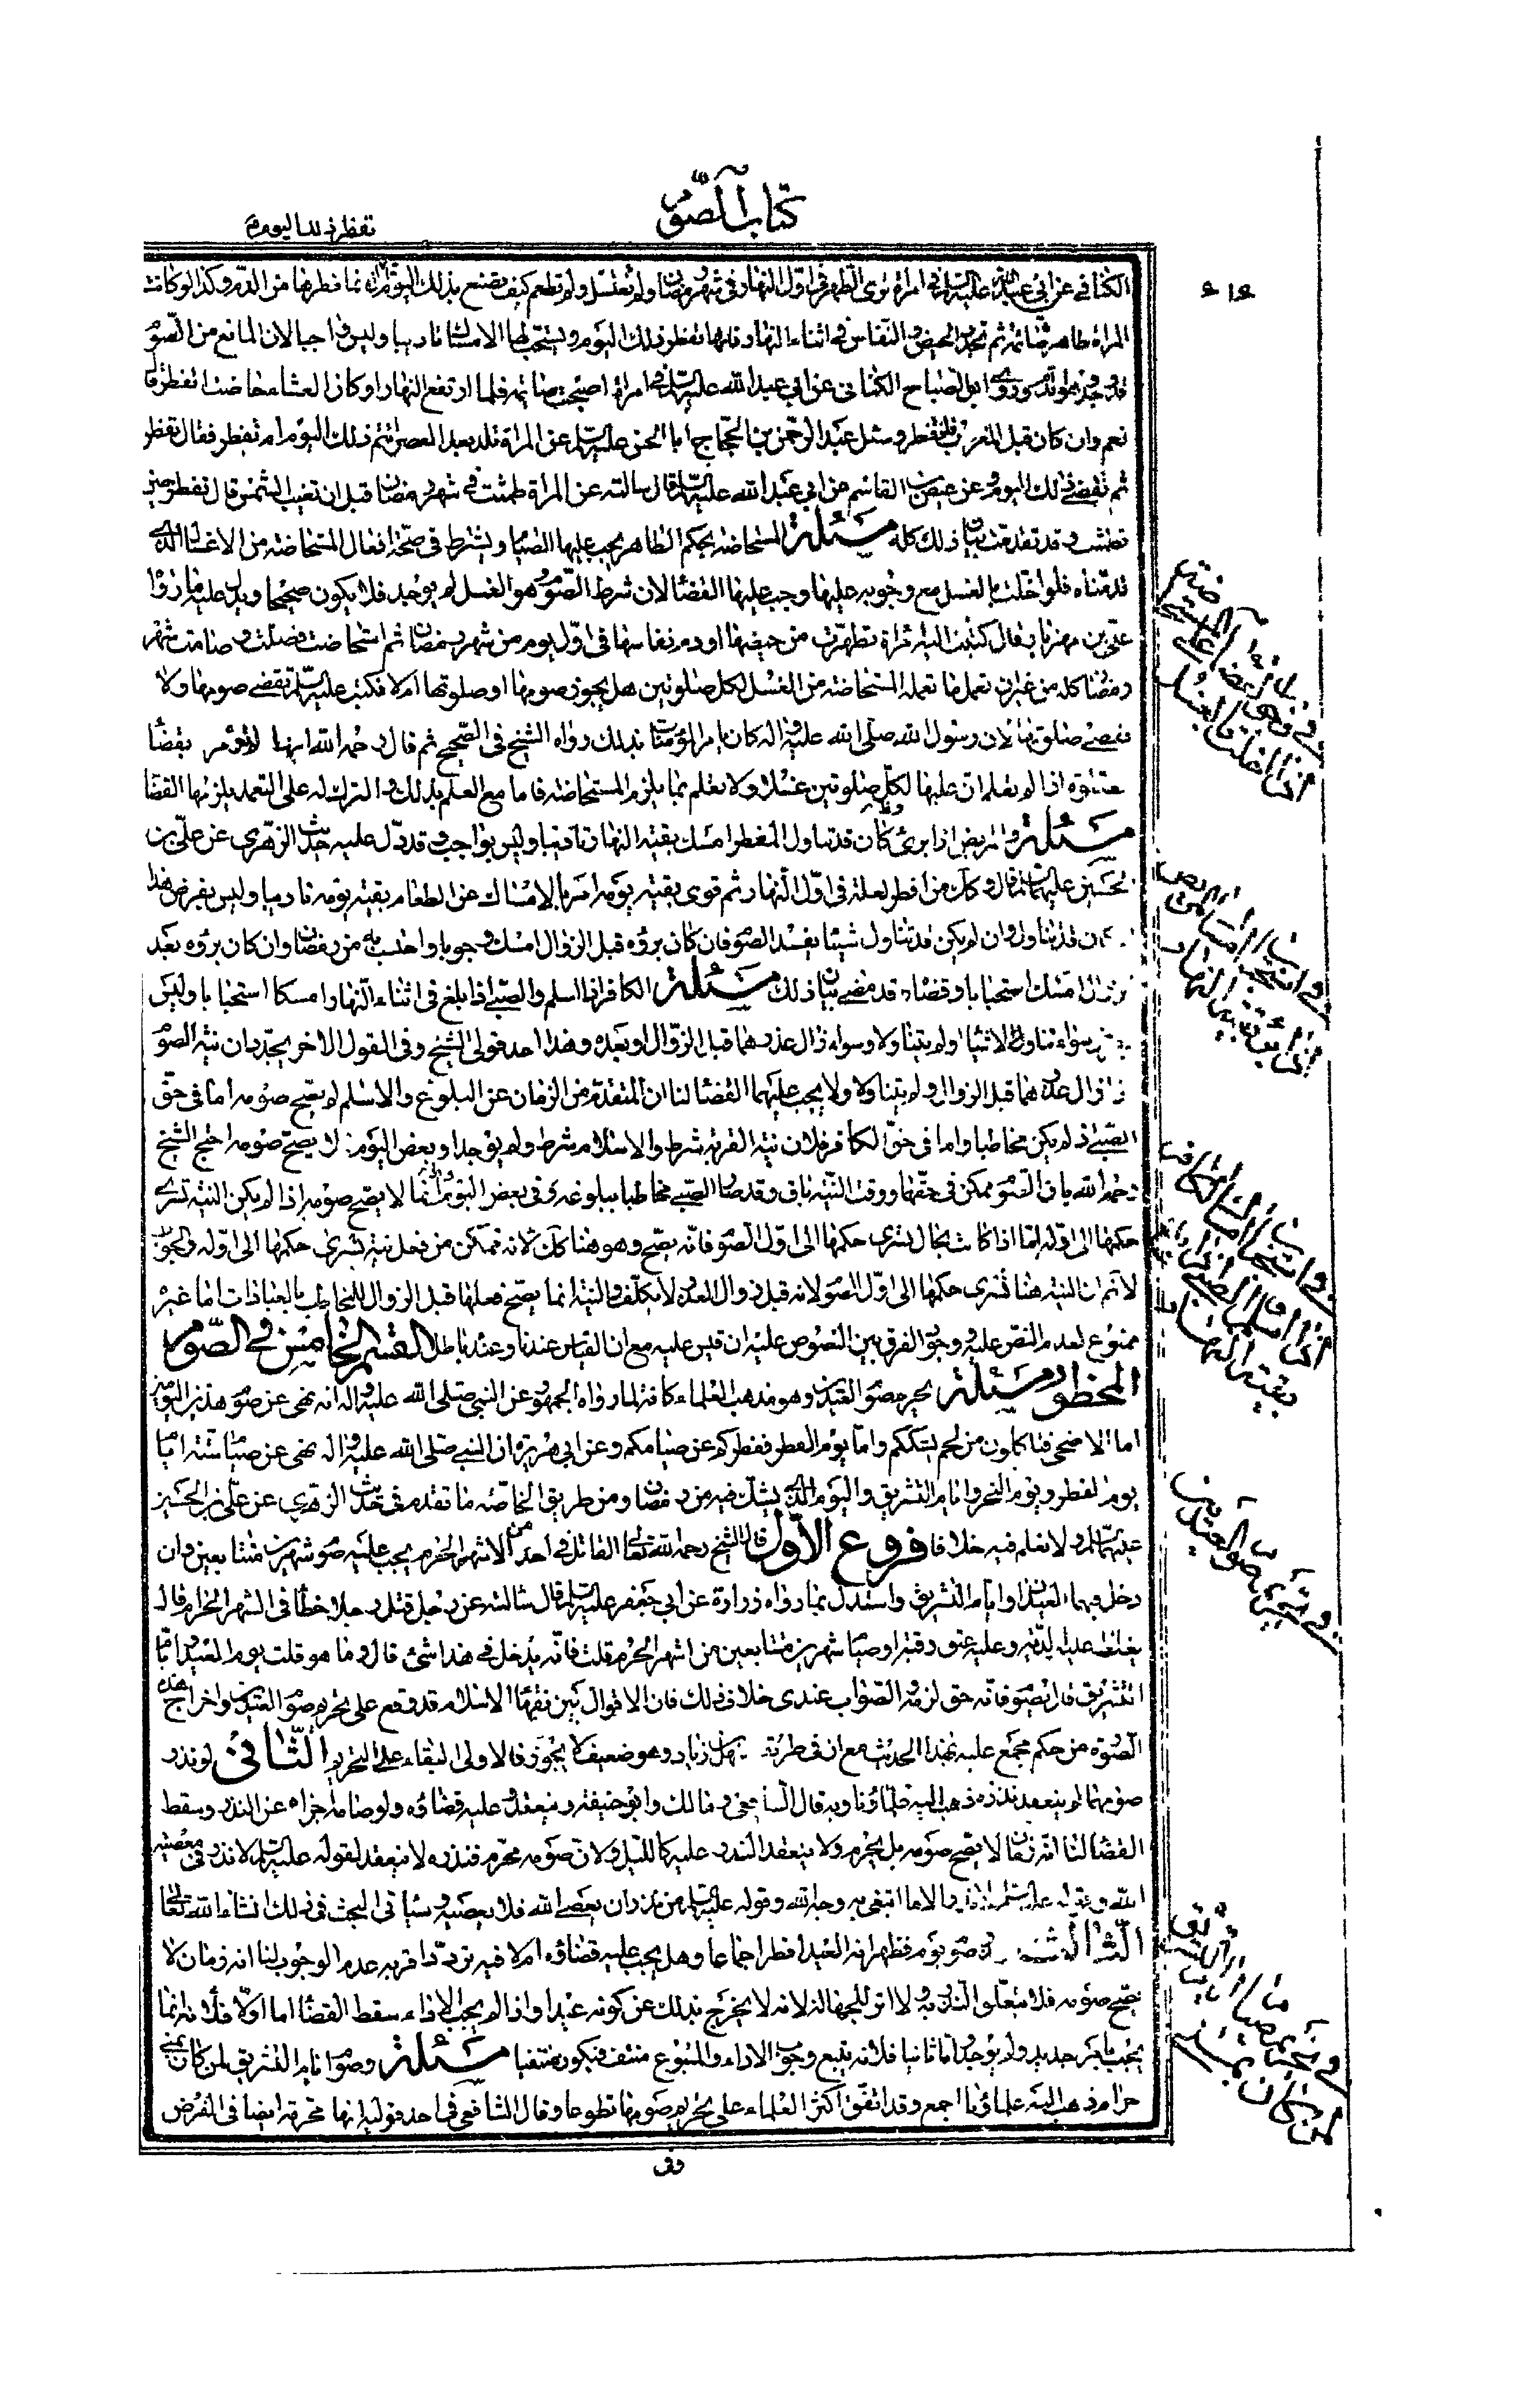 كتاب الصوم
تفطر ذلك اليوم
الكناني عن أبي عبد الله عليه السلام في امرأة ترى الطهر في أول النهار في شهر رمضان ولم تغتسل ولم تطعم كيف تصنع بذلك اليوم قال إنما فطرها من الدم وكذا لو كانت
المرأة طاهرة صائمة ثم تجدد الحيض والنفاس في أثناء النهار فإنها تفطر ذلك اليوم ويستحب لها الامساك تاديبا وليس واجبا لان المانع من الصوم
قد وجد روى أبو الصباح الكناني عن أبي عبد الله عليه السلام في امرأة أصبحت صائمة فلما ارتفع النهار أو كان العشاء حاضت أتفطر قال
نعم وان كان قبل المغرب فلتفطر وسئل عبد الرحمن بن الحجاج أبا الحسن عليه السلام عن المرأة تلد بعد العصر أتتم ذلك اليوم أم تفطر فقال تفطر
ثم تقضي ذلك اليوم وعن عيص بن القاسم عن أبي عبد الله عليه السلام قال سألته عن المرأة طمثت في شهر رمضان قبل ان تغيب الشمس قال تفطر حين
تطمث وقد تقدمت بيان ذلك كله مسئلة المستحاضة بحكم الطاهر يجب عليها الصيام ويشترط في صحة افعال المستحاضة من الاغتسال الذي
قدمناه فلو أخلت بالغسل مع وجوبه عليها وجب عليها القضا لان شرط الصوم وهو الغسل لم يوجد فلا يكون صحيحا ويدل عليه ما رواه
علي بن مهزيار قال كتبت إليه امرأة تطهرت من حيضها أو دم نفاسها في أول يوم من شهر رمضان ثم استحاضت فصلت وصامت شهر
رمضان كله من غير أن تعمل ما تعمله المستحاضة من الغسل لكل صلوتين هل يجوز صومها أو صلوتها أم لا فكتب عليه السلام تقضي صومها ولا
تقضي صلوتها لان رسول الله صلى الله عليه وآله كان يأمر المؤمنات بذلك رواه الشيخ في الصحيح ثم قال رحمه الله انها لا تؤمر بقضا
الصلوة إذا لم تعلم ان عليها لكل صلوتين غسلا ولا تعلم بما يلزم المستحاضة فاما مع العلم بذلك والترك له على التعمد يلزمها القضا
مسئلة والمريض إذا برئ وكان قد تناول المفطر امسك بقية النهار تاديبا وليس بواجب وقد دل عليه حديث الزهري عن علي بن
الحسين عليهما السلام قال وكل من أفطر لعلة في أول النهار ثم قوى بقية يومه امر بالامساك عن الطعام بقية يومه تاديبا وليس بفرض هذا
إن كان قد تناول وان لم يكن قد تناول شيئا يفسد الصوم فان كان برؤه قبل الزوال امسك وجوبا واحتسب به من رمضان وان كان برؤه بعد
الزوال امسك استحبابا وقضاه وقد مضى بيان ذلك مسئلة الكافر إذا أسلم والصبي إذا بلغ في أثناء النهار امسكا استحبابا وليس
سواء تناولا شيئا أو لم يتناولا وسواء زال عذرهما قبل الزوال أو بعده وهذا أحد قولي الشيخ وفي القول الآخر يجددان نية الصوم
إذا زال عذرهما قبل الزوال ولم يتناولا ولا يجب عليهما القضا لنا ان المتقدم من الزمان عن البلوغ والاسلام لم يصح صومه اما في حق
الصبي إذ لم يكن مخاطبا واما في حق الكافر فلان نية القربة شرط والاسلام شرط ولم يوجدا وبعض اليوم لا يصح صومه احتج الشيخ
رحمه الله بان الصوم ممكن في حقهما ووقت النية باق وقد صار الصبي مخاطبا ببلوغه وفي بعض اليوم إنما لا يصح صومه إذا لم يكن النية تسري
حكمها إلى أوله اما إذا كانت بحال يسرى حكمها إلى أول الصوم فإنه يصح وهو هنا كذلك لأنه تمكن من فعل نية يسري حكمها إلى أوله والجواب
لا نسلم ان النية هنا تسرى حكمها إلى أول الصوم لأنه قبل زوال العذر لا يكلف والنية انما يصح فعلها قبل الزوال للمخاطب بالعبادات اما غيره
ممنوع لعدم النص عليه ووجود الفرق بين المنصوص عليه ان قيس عليه مع أن القياس عندنا وعنده باطل القسم الخامس في الصوم
المحظور مسئلة يحرم صوم العيدين وهو مذهب العلماء كافة لما رواه الجمهور عن النبي صلى الله عليه وآله انه نهى عن صوم هذين اليومين
اما الأضحى فتأكلون من لحم نسككم واما يوم الفطر ففطركم عن صيامكم وعن أبي هريرة ان النبي صلى الله عليه وآله نهى عن صيام ستة أيام
يوم الفطر ويوم النحر وأيام التشريق واليوم الذي يشك فيه من رمضان ومن طريق الخاصة ما تقدم في حديث الزهري عن علي بن الحسين
عليهما السلام ولا نعلم فيه خلافا فروع الأول قال الشيخ رحمه الله تعالى القاتل في أحد من الأشهر الحرم يجب عليه صوم شهرين متتابعين وان
دخل فيهما العيدان وأيام التشريق واستدل بما رواه زرارة عن أبي جعفر عليه السلام قال سألته عن رجل قتل رجلا خطأ في الشهر الحرام قال
يغلظ عليه الدية وعليه عتق رقبة أو صيام شهرين متتابعين من أشهر الحرم قلت فإنه يدخل في هذا شئ قال وما هو قلت يوم العيد وأيام
التشريق قال يصوم فإنه حق لزمه والصواب عندي خلاف ذلك فان الأقوال بين فقهاء الاسلام قد وقع على تحريم صوم العيدين واخراج هذه
الصورة من حكم مجمع عليه بهذا الحديث مع أن في طريقه سهل بن زياد وهو ضعيف لا يجوز فالأولى البقاء على التحريم الثاني لو نذر
صومهما لم ينعقد نذره ذهب إليه علماؤنا وبه قال الشافعي ومالك وأبو حنيفة وينعقد وعليه قضاؤه ولو صامه اجزاه عن النذر وسقط
القضا لنا انه زمان لا يصح صومه بل يحرم ولا ينعقد النذر عليه كالليل ولان صومه محرم فنذره لا ينعقد لقوله عليه السلام لا نذر في معصية
الله وبقوله عليه السلام لا نذر إلا ما ابتغى به وجه الله وقوله عليه السلام من نذر ان يعصي الله فلا يعصيه وسيأتي البحث في ذلك إن شاء الله تعالى
الثالث لو نذر صوم يوم فظهر انه العيد أفطر اجماعا وهل يجب عليه قضاؤه أم لا فيه تردد أقربه عدم الوجوب لنا انه زمان لا
يصح صومه فلا يتعلق النذر به ولا اثر للجهالة لأنه لا يخرج بذلك عن كونه عيدا وإذا لم يجب الأداء سقط القضا اما أولا فلأنه انما
يجب بأمر جديد ولم يوجد واما ثانيا فلانه يتبع وجوب الأداء والمتبوع منتف فيكون منتفيا مسئلة وصوم أيام التشريق لمن كان بمنى
حرام ذهب إليه علماؤنا اجمع وقد اتفق أكثر العلماء على تحريم صومها تطوعا وقال الشافعي في أحد قوليه انها محرمة أيضا في الفرض
وفي
في استحباب امساك المريض إذا برئ بقية النهار
في استحباب امساك الكافر إذا أسلم والصبي إذا بلغ بقية النهار
في تحريم صوم العيدين
في تحريم صيام أيام التشريق لمن كان بمنى